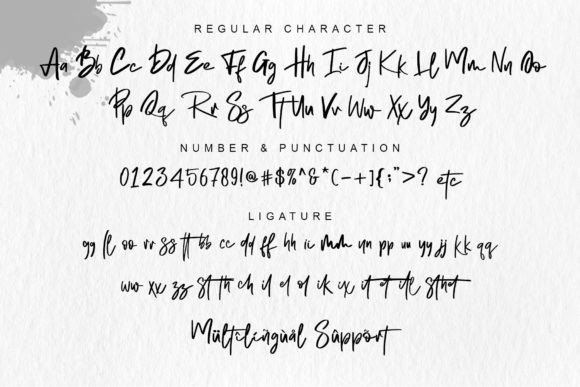 REGULAR CHARACTER
Aa Bb Cc Dd Ee Ff Gg Hh Ii Jj Kk Ll Mm Nn Oo
Pp Qq Rr Ss Tt Uu Vv Ww Xx Yy Zz
NUMBER & PUNCTUATION
0123456789!@#$%^&*(-+]{;">? etc
LIGATURE
gg ll oo rr ss tt bb cc dd ff hh ii mm nn pp uu yy jj kk qq
ww xx zz st th ch il el ol ik ux it at de sthd
Mültclíñgùàl Sûppört